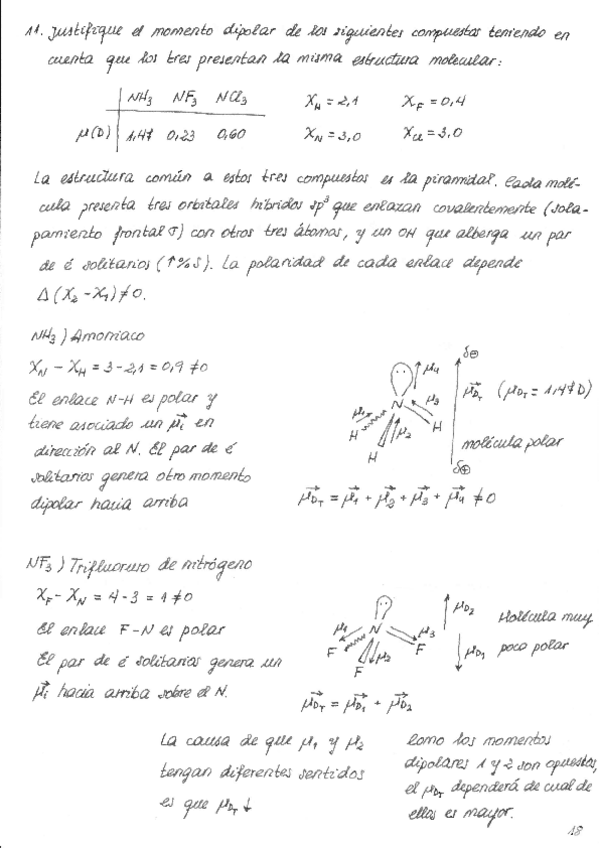 11. Justifique el momento dipolar de los siguientes compuestos teniendo en
cuenta que los tres presentan la misma estructura molecular:
NH₃ NF₃ NCl₃
μ(D) 1,47 0,23 0,60
χ_H = 2,1 χ_F = 0,4
χ_N = 3,0 χ_Cl = 3,0
La estructura común a estos tres compuestos es la piramidal. Cada molé-
cula presenta tres orbitales híbridos sp³ que enlazan covalentemente (sola-
pamiento frontal σ) con otros tres átomos, y un OH que alberga un par
de é solitarios (↑%S). La polaridad de cada enlace depende
Δ(χ₂-χ₁)≠0.
NH₃) Amoniaco
χ_N - χ_H = 3-2,1 = 0,9 ≠0
El enlace N-H es polar y
tiene asociado un μᵢ⃗ en
dirección al N. El par de é
solitarios genera otro momento
dipolar hacia arriba
δ⊖
μ₄
N
μ₁ μ₃
H μ₂ H
H
μ_DT⃗ (μ_DT = 1,47D)
molécula polar
δ⊕
μ_DT⃗ = μ₁⃗ + μ₂⃗ + μ₃⃗ + μ₄⃗ ≠0
NF₃) Trifluoruro de nitrógeno
χ_F - χ_N = 4-3 = 1 ≠0
El enlace F-N es polar
El par de é solitarios genera un
μᵢ⃗ hacia arriba sobre el N.
μ₁ N μ₃
F μ₂ F
F
μ_D2
μ_D1
Molécula muy
poco polar
μ_DT⃗ = μ_D1⃗ + μ_D2⃗
La causa de que μ₁ y μ₂
tengan diferentes sentidos
es que μ_DT ↓
Como los momentos
dipolares 1 y 2 son opuestos,
el μ_DT dependerá de cual de
ellos es mayor.
18